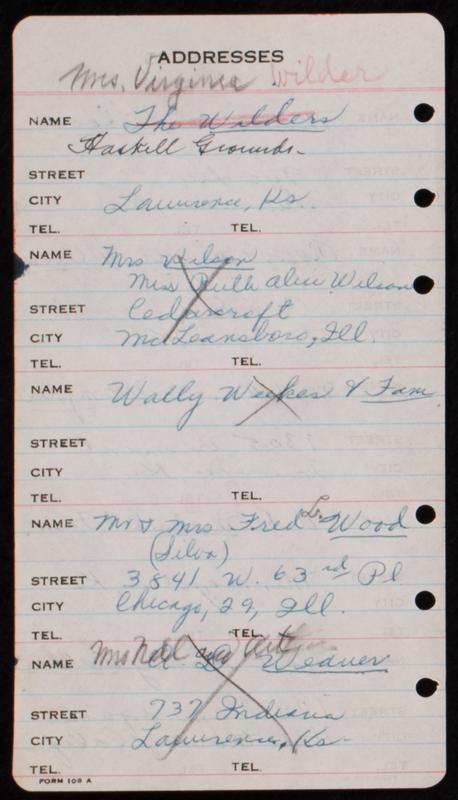 ADDRESSES
Mrs. Virginia Wilder
NAME The Wilders
Haskell Grounds.
STREET
CITY Lawrence, Ks.
TEL. TEL.
NAME Mrs Wilson
Miss Ruth Alice Wilson
STREET Cedarcroft
CITY McLeansboro, Ill.
TEL. TEL.
NAME Wally Weekes & Fam
STREET
CITY
TEL. TEL.
NAME Mr & Mrs Fred Wood
(Silva)
STREET 3841 W. 63rd Pl
CITY Chicago, 29, Ill.
TEL. TEL.
Mrs
NAME Weaver
STREET 737 Indiana
CITY Lawrence, Ks.
TEL. TEL.
FORM 109 A